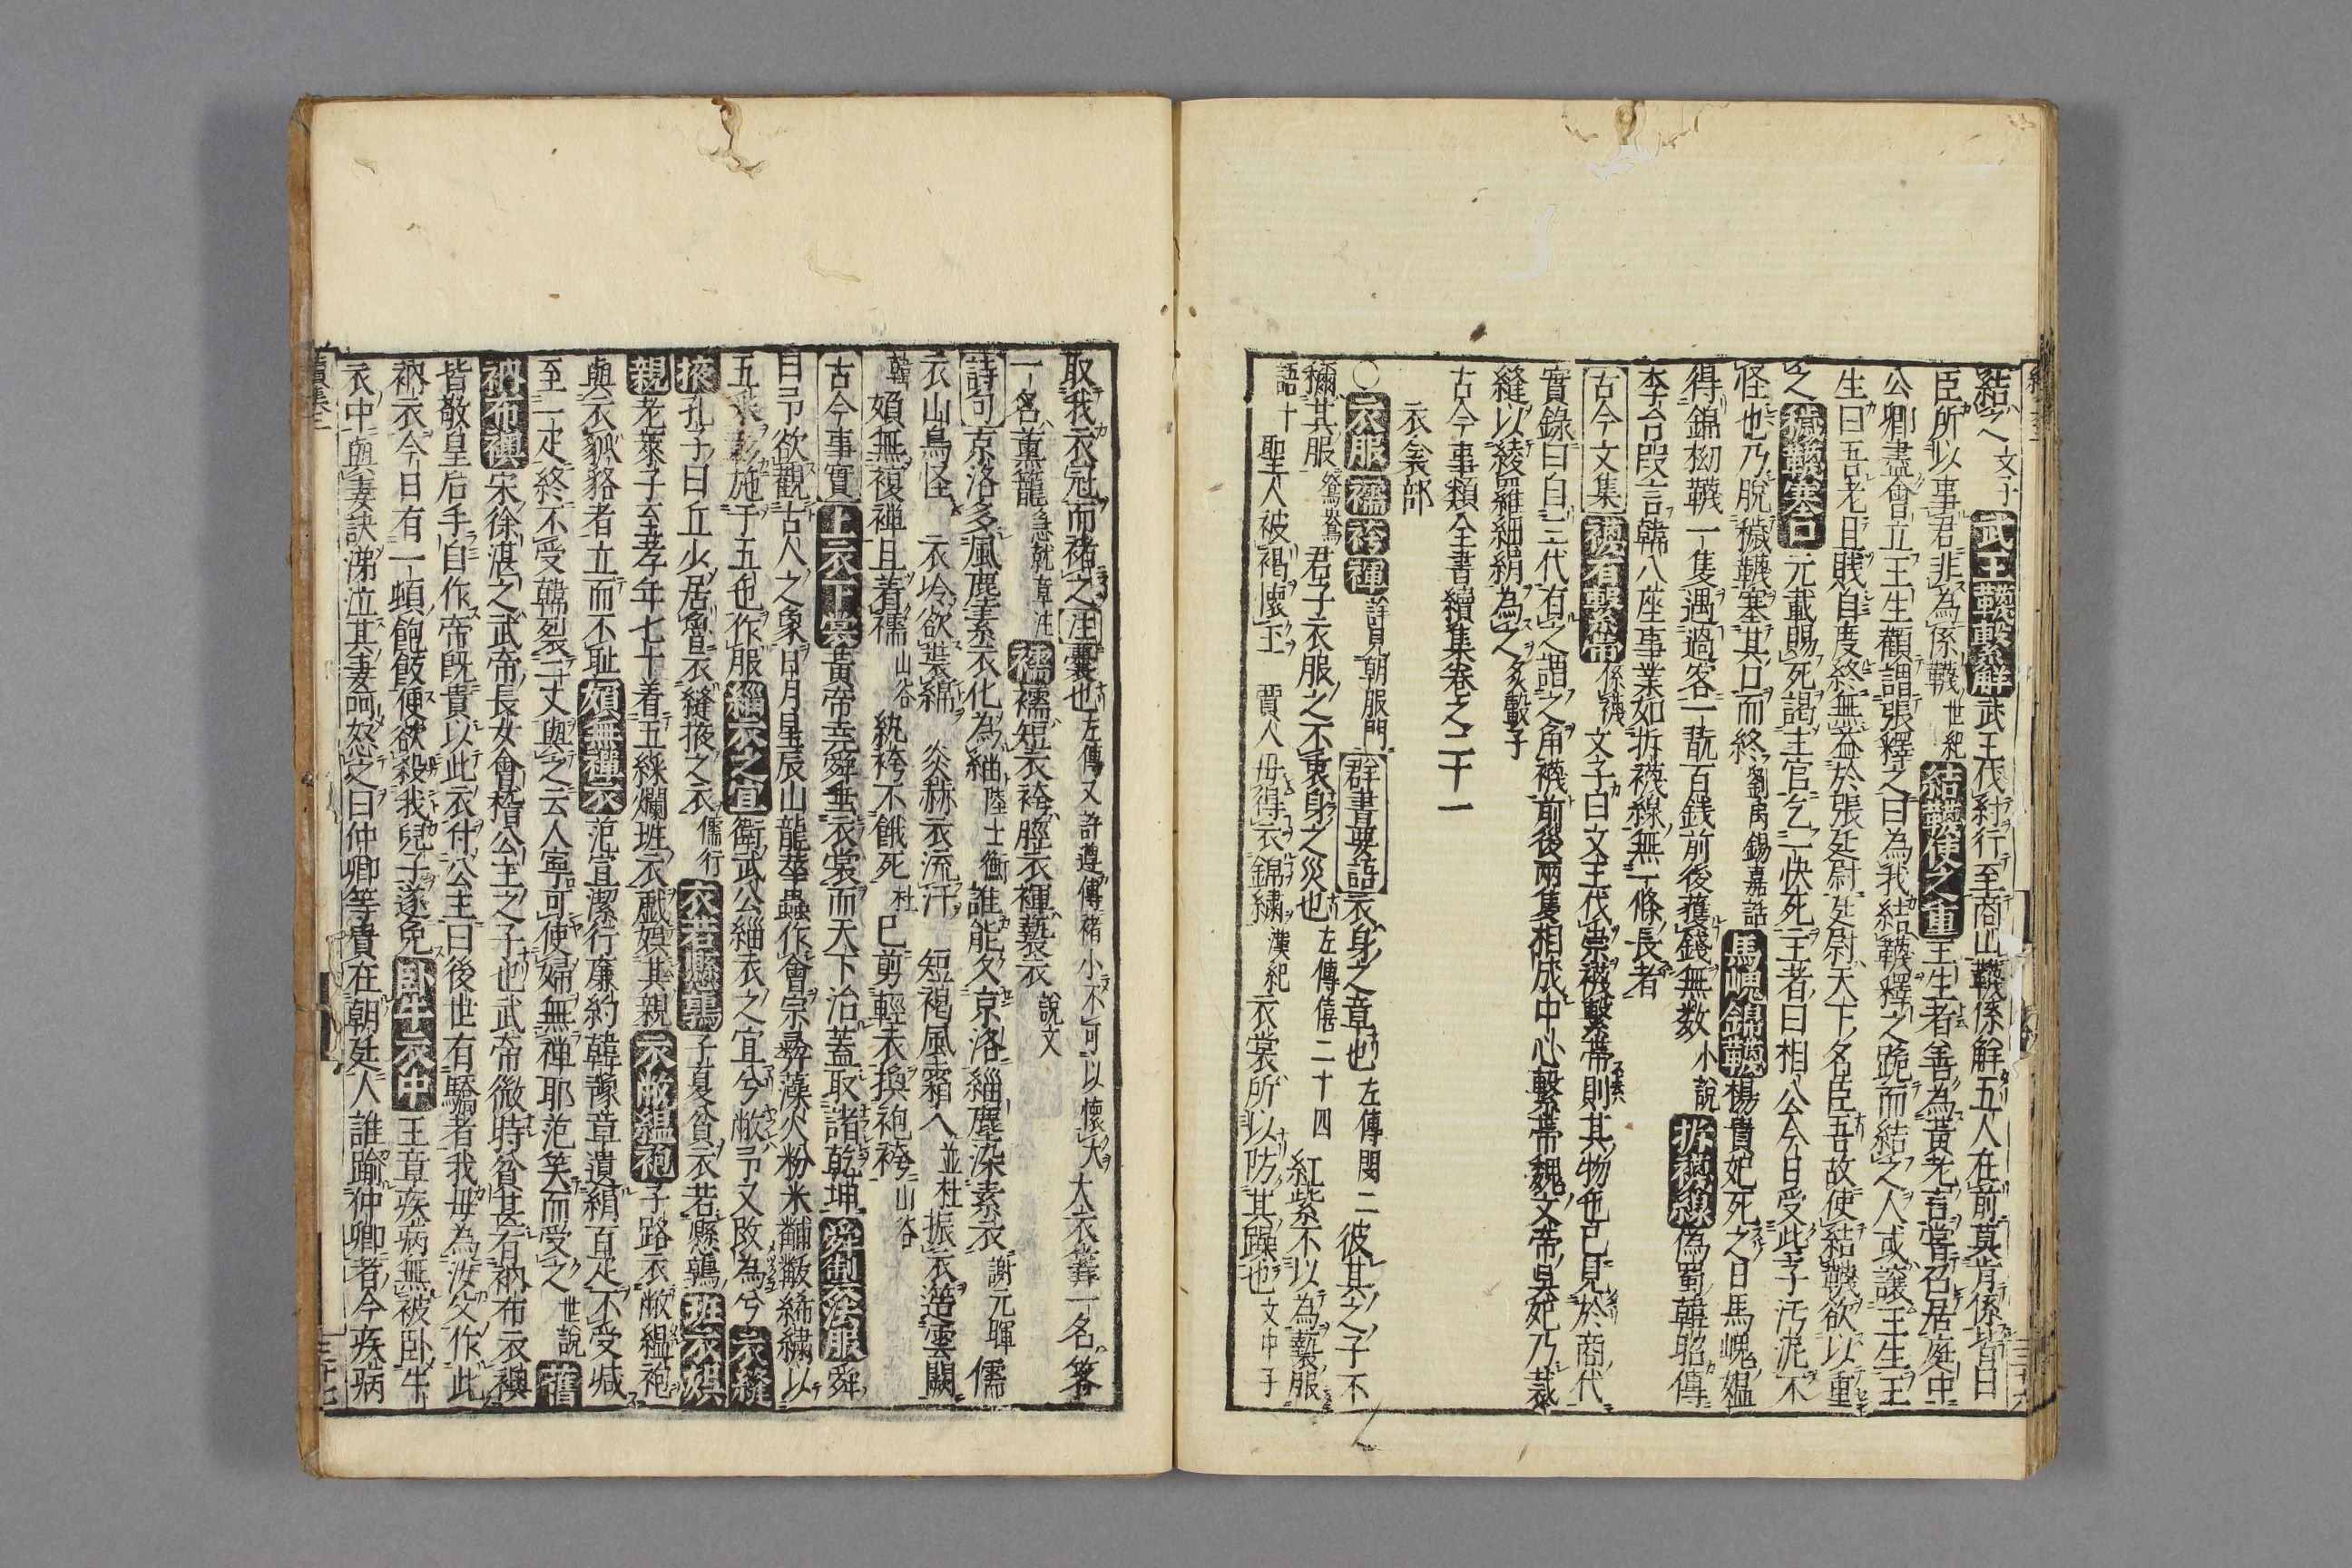 結之 文子 武王韈繫解 武王伐紂行至商山韈係解五人在前莫肯係皆曰
臣所以事君非為係韈 世紀 結韈使之重 王生者善為黃老言嘗召居庭中
公卿盡會立王生顧謂張釋之曰為我結韈釋之跪而結之人或讓王生王
生曰吾老且賤自度終無益於張廷尉廷尉天下名臣吾故使結韈欲以重
之 穢韈塞口 元載賜死謁主官乞一快死主者曰相公今日受此子汚泥不
怪也乃脫穢韈塞其口而終 劉禹錫嘉話 馬嵬錦韈 楊貴妃死之日馬嵬媼
得錦袎韈一隻遇過客一翫百錢前後獲錢無数 小說 拆襪線 偽蜀韓昭傳
李台叚言韓八座事業如拆襪線無一條長者
古今文集 襪有繫帶 係襪 文子曰文王伐崇襪繫帶則其物也已見於商代
實錄曰自三代有之謂之角襪前後兩隻相成中心繫帶魏文帝吳妃乃裁
縫以綾羅紬絹為之 炙轂子
古今事類全書續集卷之二十一
衣衾部
○ 衣服 襦 袴 褌 詳見朝服門 群書要語 衣身之章也 左傳閔二 彼其之子不
稱其服 鵷鴦 君子衣服之不衷身之災也 左傳僖二十四 紅紫不以為褻服
語十 聖人被褐懷玉 賈人毋得衣錦繡 漢紀 衣裳所以防其躁也 文中子
取我衣冠而褚之 注 囊也 左傳 又許遵傳褚小不可以懷大 大衣葬一名篝
一名薰籠 急就章注 襦 襦短衣袴脛衣褌褻衣 說文
詩句 京洛多風塵素衣化為緇 陸士衡 誰能久京洛緇塵染素衣 謝元暉 儒
衣山鳥怪 衣冷欲裝綿 炎赫衣流汗 短褐風霜入 並杜 振衣造雲闕
韓 頻無複襌且着襦 山谷 紈袴不餓死 杜 已剪輕衣換袍袴 山谷
古今事實 上衣下裳 黃帝堯舜垂衣裳而天下治蓋取諸乾坤 舜制法服 舜
曰予欲觀古人之象日月星辰山龍華蟲作會宗彞藻火粉米黼黻絺繡以
五采彰施于五色作服 緇衣之宜 衛武公緇衣之宜兮敝予又改為兮 衣縫
掖 孔子曰丘少居魯衣縫掖之衣 儒行 衣若懸鶉 子夏貧衣若懸鶉 班衣娛
親 老萊子至孝年七十着五綵爛班衣戯娛其親 衣敝縕袍 子路衣敝縕袍
與衣狐貉者立而不耻 頻無襌衣 范宣潔行廉約韓豫章遺絹百疋不受减
至一疋終不受韓裂二丈與之云人寧可使婦無襌耶范笑而受之 世說 舊
衲布襖 宋徐湛之武帝長女會稽公主之子也武帝微時貧甚有衲布衣襖
皆敬皇后手自作帝既貴以此衣付公主曰後世有驕者我毋為汝父作此
衲衣今日有一頓飽飯便欲殺我兒子遂免 卧牛衣中 王章疾病無被卧牛
衣中與妻訣涕泣其妻呵怒之曰仲卿等貴在朝廷人誰踰仲卿者今疾病